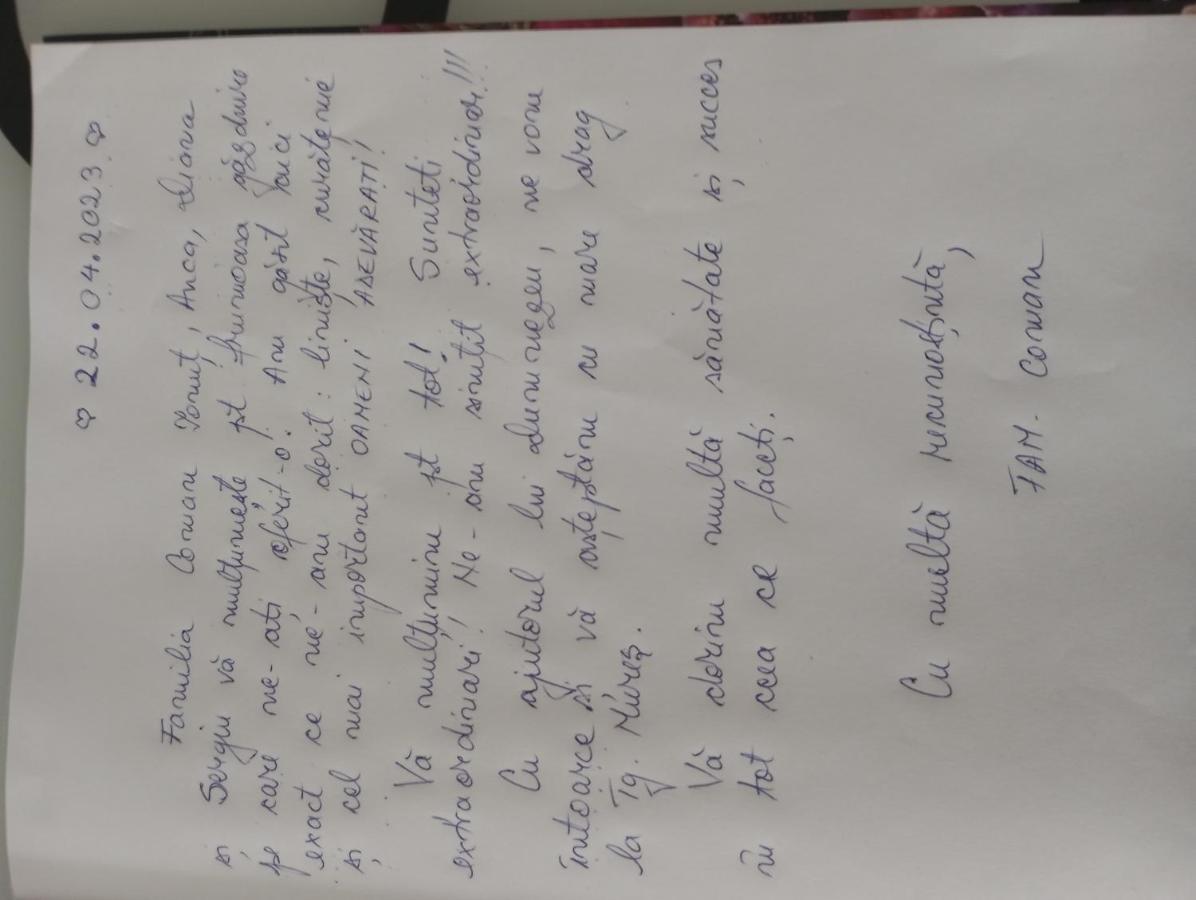 ♡ 22.04.2023 ♡
Familia Coman Ionuț, Anca, Diana
și Sergiu vă mulțumește pt frumoasa găzduire
pe care ne-ați oferit-o! Am găsit aici
exact ce ne-am dorit: liniște, curățenie
și cel mai important OAMENI ADEVĂRAȚI!
Vă mulțumim pt tot! Sunteți
extraordinari! Ne-am simțit extraordinar!!!
Cu ajutorul lui Dumnezeu, ne vom
întoarce și vă așteptăm cu mare drag
la Tg. Mureș.
Vă dorim multă sănătate și succes
în tot ceea ce faceți.
Cu multă recunoștință,
FAM. Coman